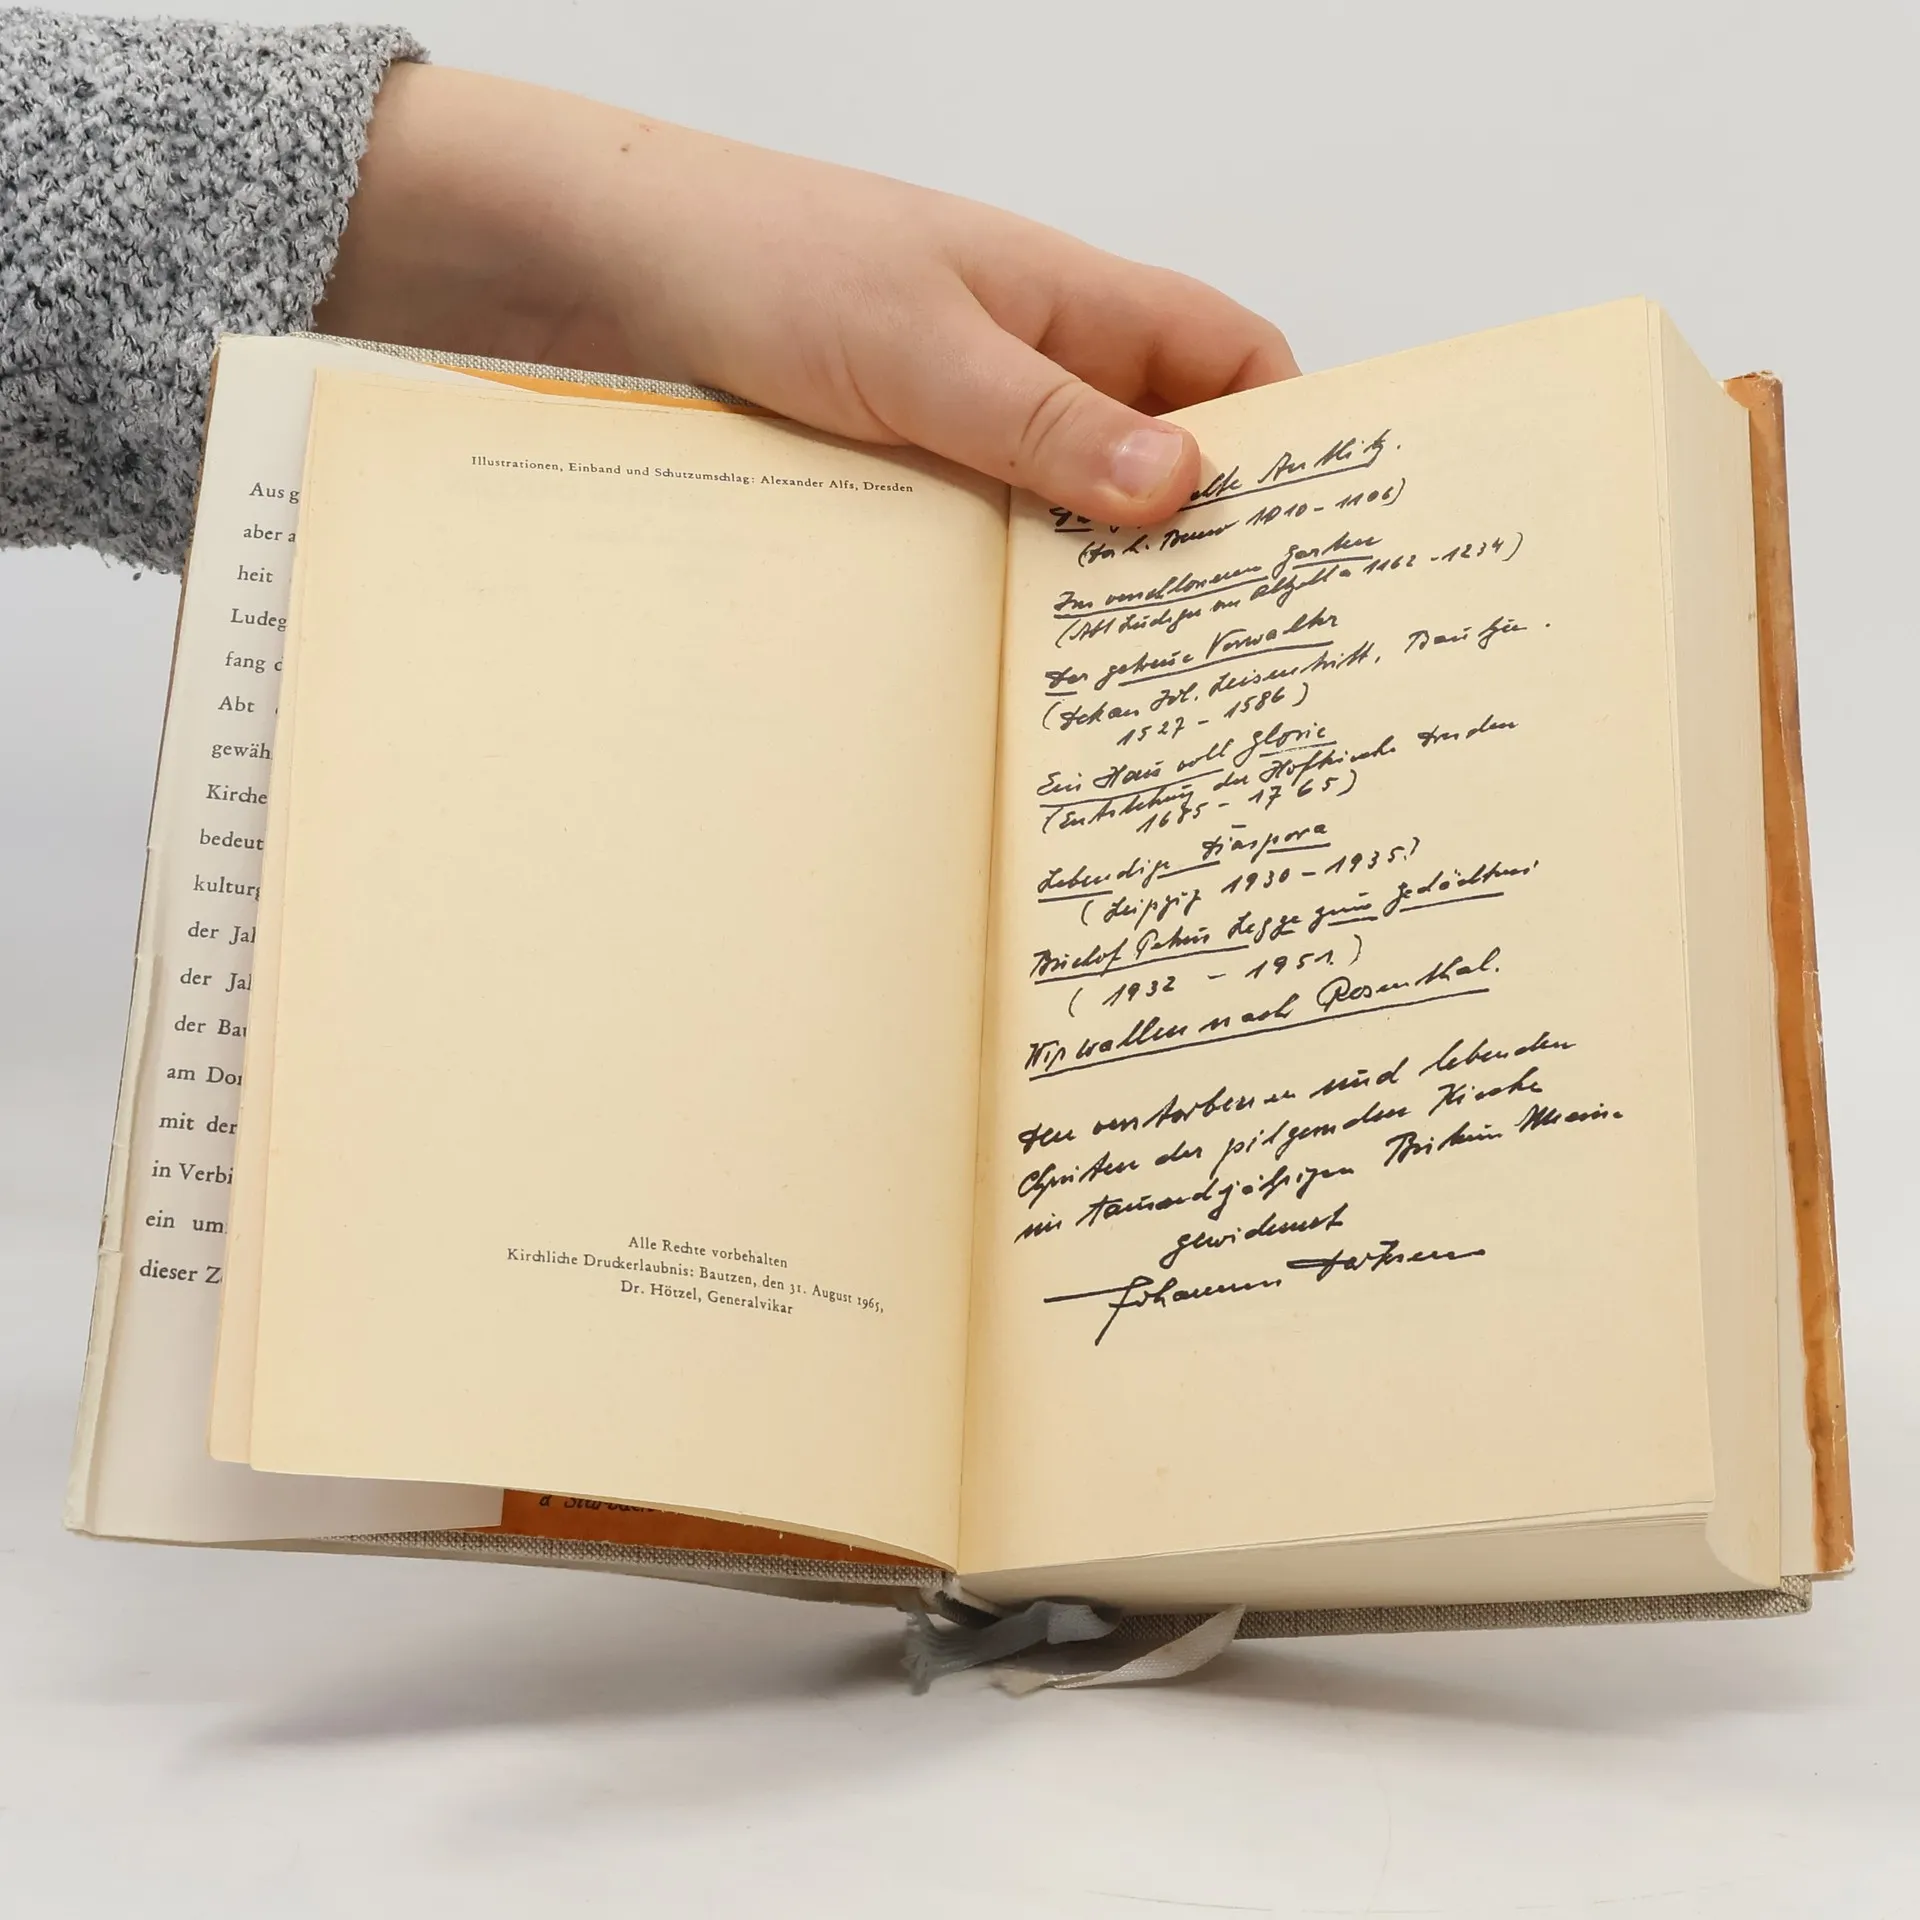 Aus g
aber a
heit
Ludeg
fang d
Abt
gewäh
Kirche
bedeut
kulturg
der Jah
der Jah
der Bau
am Dom
mit der
in Verbi
ein um
dieser Z
Illustrationen, Einband und Schutzumschlag: Alexander Alfs, Dresden
Alle Rechte vorbehalten
Kirchliche Druckerlaubnis: Bautzen, den 31. August 1965,
Dr. Hötzel, Generalvikar
Antlitz.
(der hl. Benno 1010-1106)
Im verschlossenen Garten
(Abt Ludeger von Altzella 1162-1234)
Der getreue Verwalter
(Dekan Joh. Leisentritt, Bautzen.
1527 - 1586)
Ein Haus voll Glorie
(Entstehung der Hofkirche Dresden
1685 - 1765)
Lebendige Diaspora
(Leipzig 1930 - 1935.)
Bischof Petrus Legge zum Gedächtnis
(1932 - 1951.)
Wir wallen nach Rosenthal.
Den verstorbenen und lebenden
Christen der pilgernden Kirche
im tausendjährigen Bistum Meißen
gewidmet
Johannes Derksen